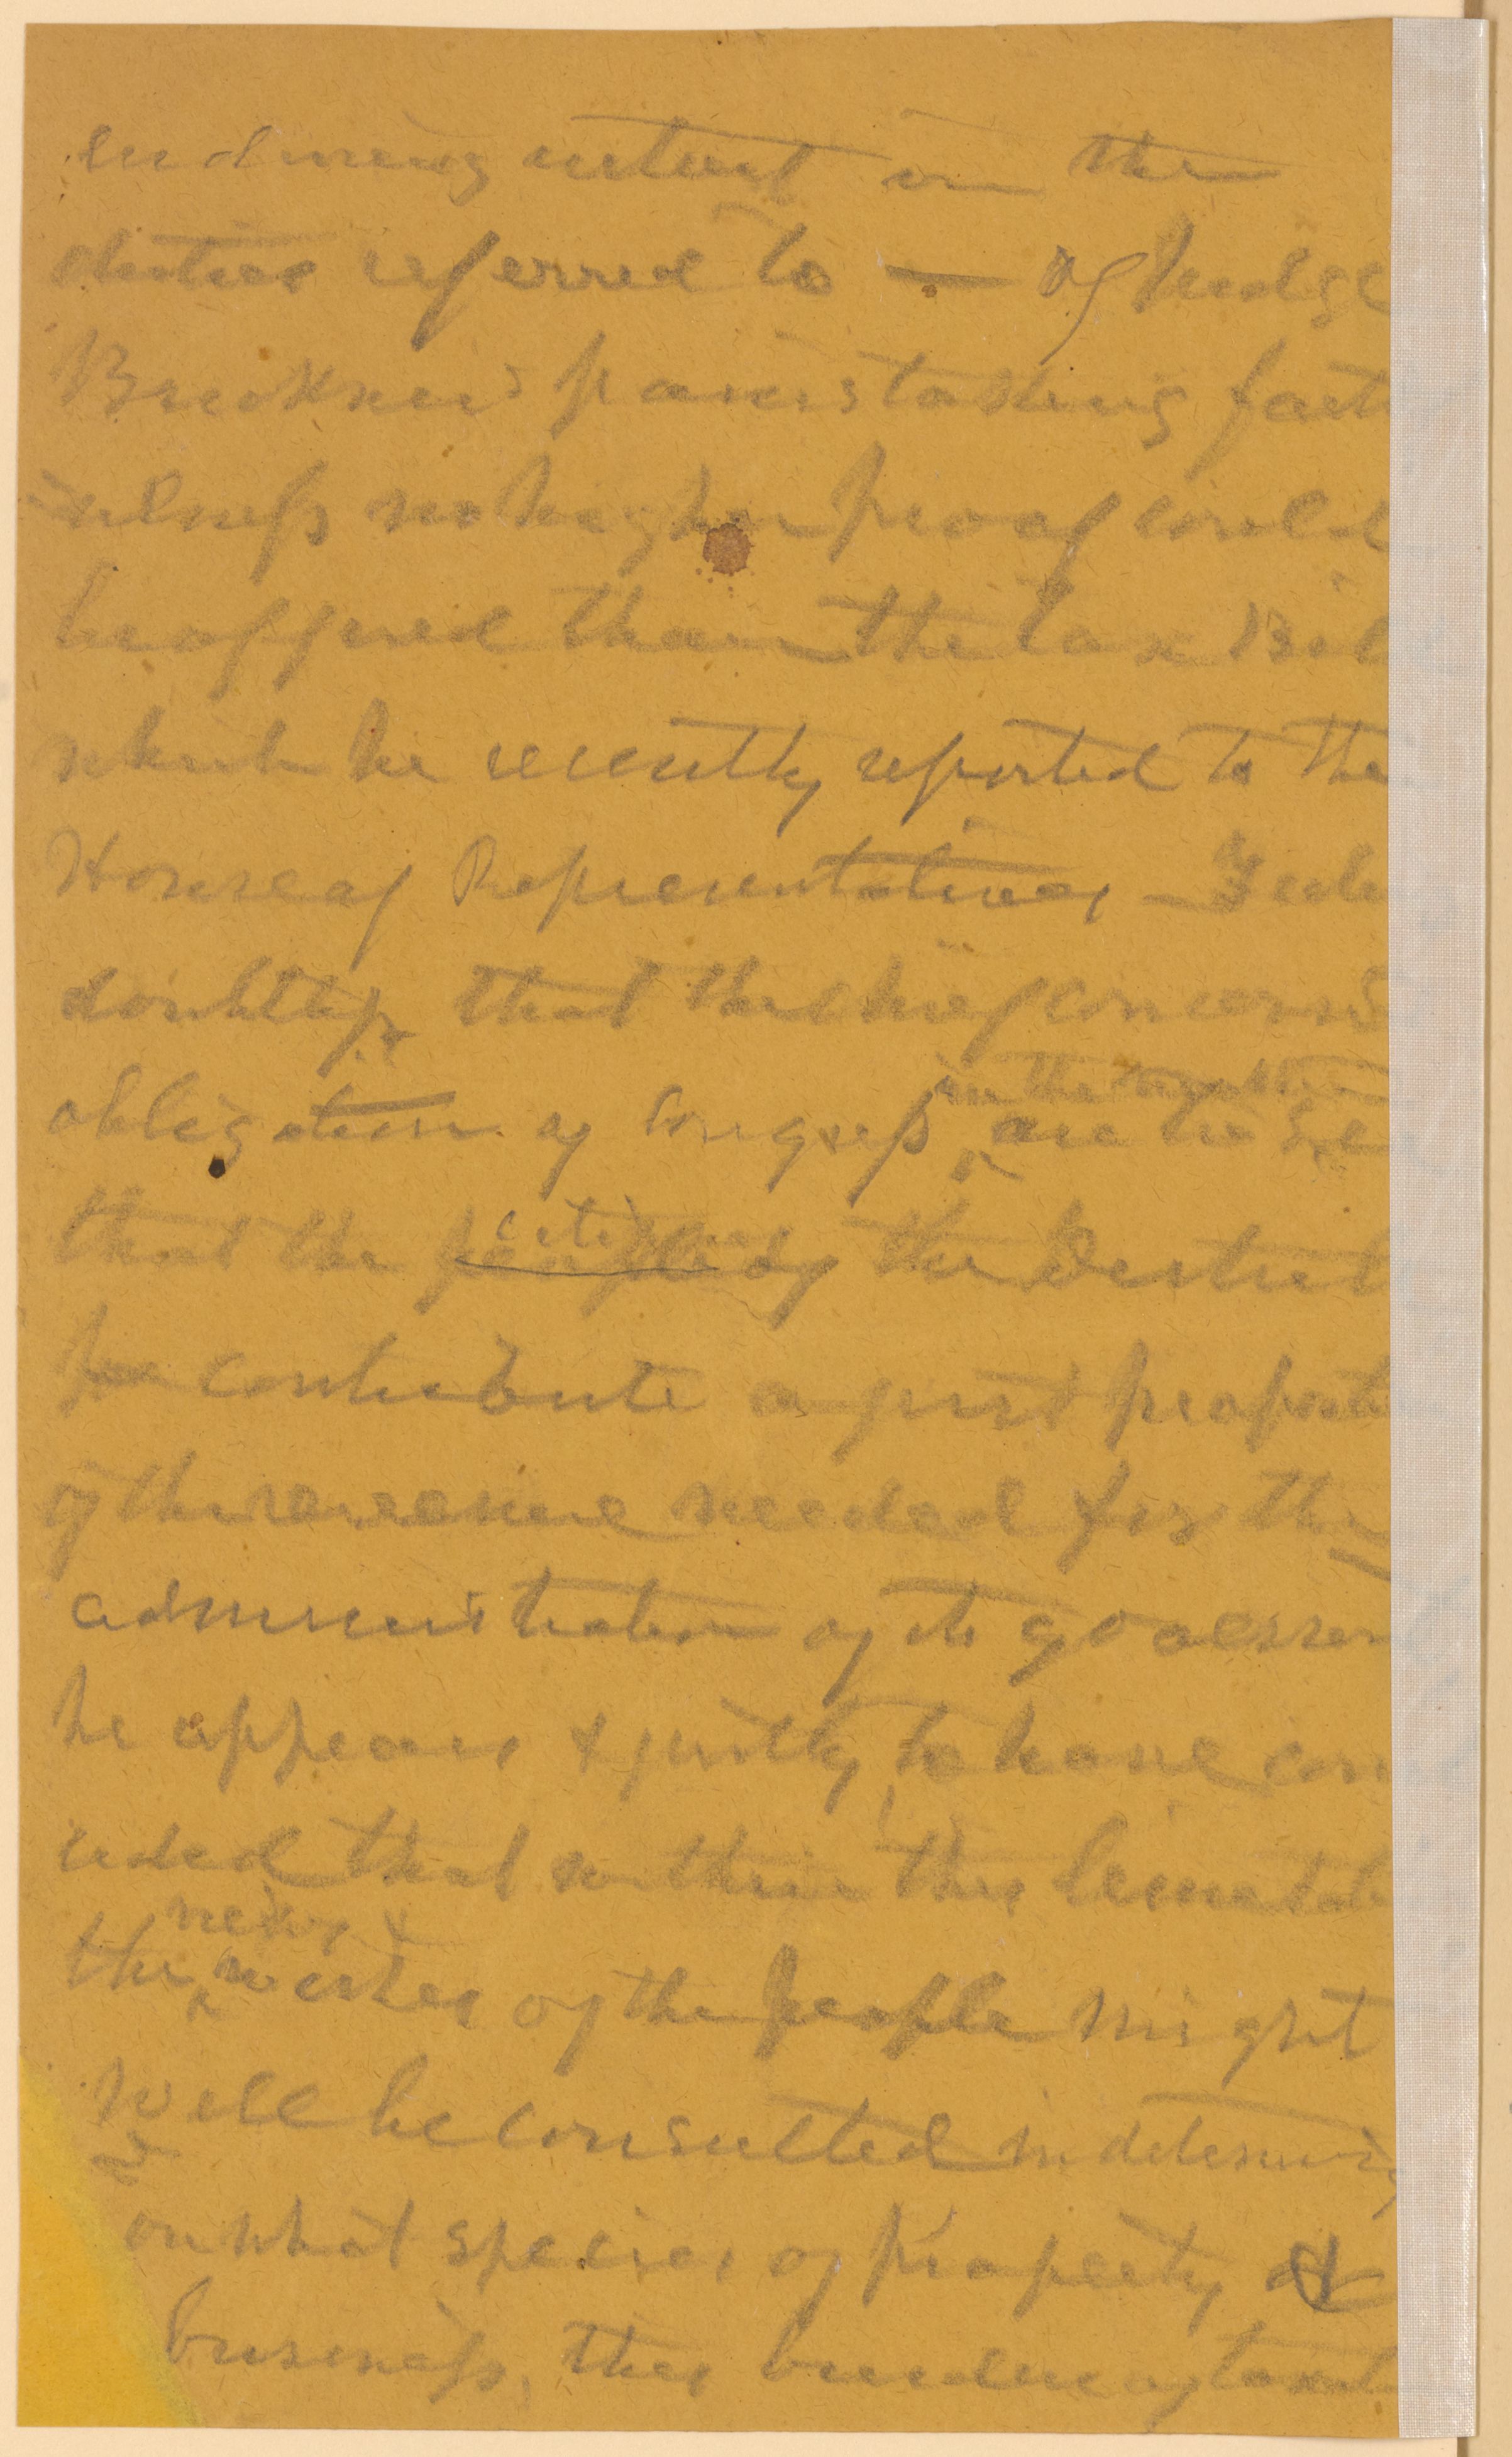 enduring interest in the
duties referred to — of Judge
painstaking faith
ulness no higher proof could
be offered than the tax Bil
which he recently reported to the
House of Representatives –
doubtless that the chief concern &
obligation of Congress in the are to se
that the people citizens of the District
contribute a just proporti
of the revenue needed for the
administration of its govern
he appears & justly to have con
ceded that within this limitati
the views & wishes of the people might
well be consulted in determinig
on what species of Property &
business, this burden of taxati